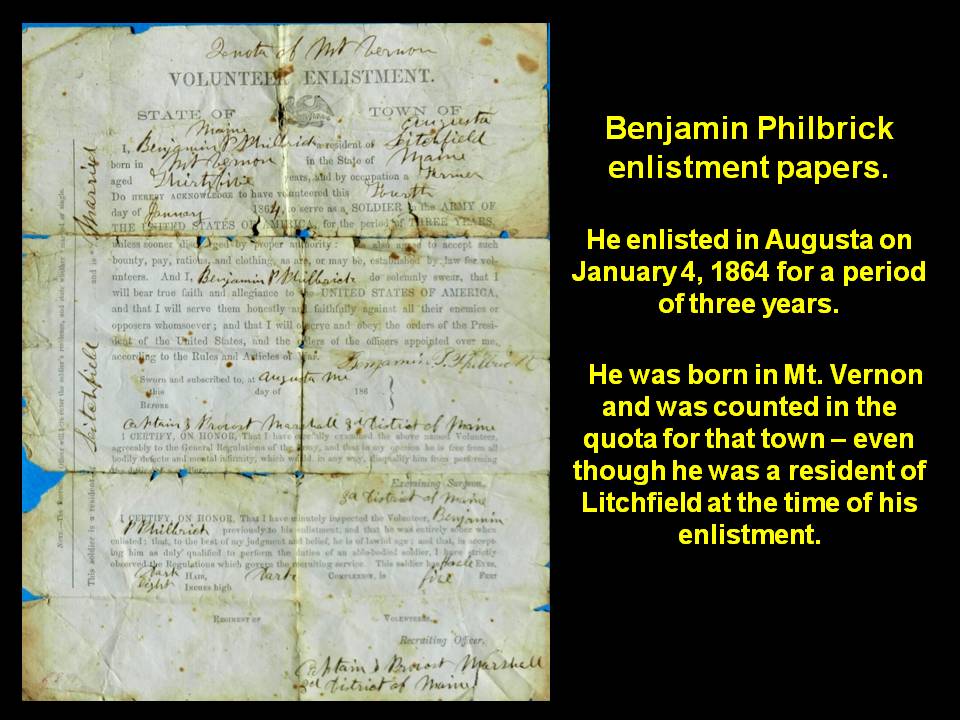 Quota of Mt Vernon
VOLUNTEER ENLISTMENT.
STATE OF TOWN OF
Maine Augusta
I, Benjamin P Philbrick a resident of Litchfield
born in Mt Vernon in the State of Maine
aged Thirty five years, and by occupation a Farmer
DO HEREBY ACKNOWLEDGE to have volunteered this Fourth
day of January 1864, to serve as a SOLDIER in the ARMY OF
THE UNITED STATES OF AMERICA, for the period of THREE YEARS,
unless sooner discharged by proper authority: Do also agree to accept such
bounty, pay, rations, and clothing, as are, or may be, established by law for vol-
unteers. And I, Benjamin P Philbrick do solemnly swear, that I
will bear true faith and allegiance to the UNITED STATES OF AMERICA,
and that I will serve them honestly and faithfully against all their enemies or
opposers whomsoever; and that I will observe and obey the orders of the Presi-
dent of the United States, and the orders of the officers appointed over me,
according to the Rules and Articles of War.
Benjamin P Philbrick
Sworn and subscribed to, at Augusta Me
this day of 186
BEFORE
Captain & Provost Marshall 3d District of Maine
I CERTIFY, ON HONOR, That I have carefully examined the above named Volunteer,
agreeably to the General Regulations of the Army, and that in my opinion he is free from all
bodily defects and mental infirmity, which would, in any way, disqualify him from performing
Examining Surgeon.
3d District of Maine
I CERTIFY, ON HONOR, That I have minutely inspected the Volunteer, Benjamin
P Philbrick previously to his enlistment, and that he was entirely sober when
enlisted; that, to the best of my judgment and belief, he is of lawful age; and that, in accept-
ing him as duly qualified to perform the duties of an able-bodied soldier, I have strictly
observed the Regulations which govern the recruiting service. This soldier has EYES,
Dark HAIR, Dark COMPLEXION, is five FEET
Eight INCHES high
REGIMENT OF VOLUNTEERS
Recruiting Officer.
Captain & Provost Marshall
3d District of Maine
This soldier is a resident of Litchfield and is Married
Benjamin Philbrick
enlistment papers.
He enlisted in Augusta on
January 4, 1864 for a period
of three years.
He was born in Mt. Vernon
and was counted in the
quota for that town – even
though he was a resident of
Litchfield at the time of his
enlistment.